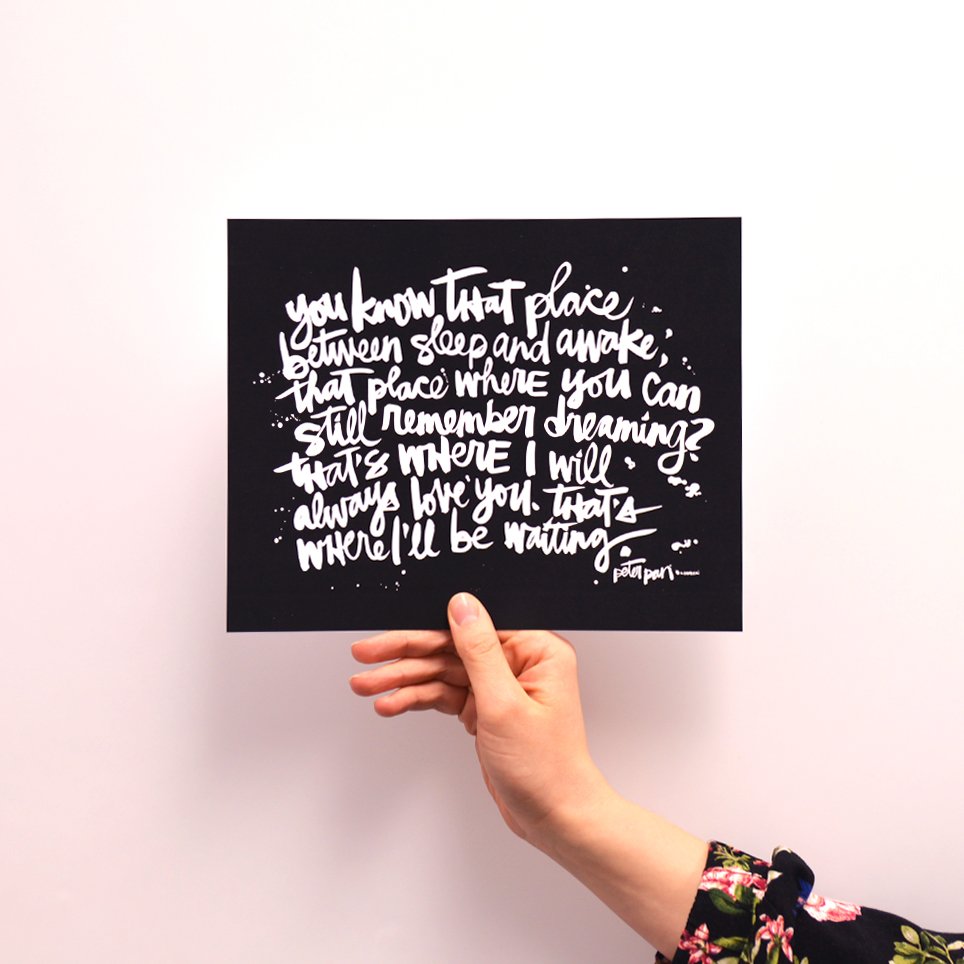 you know THat place
between sleep and awake,
that place wHERE you can
still remember dreaming?
THAT'S WHERE I will
always love you. THAT'S
WHERE I'll be waiting.
peter pan